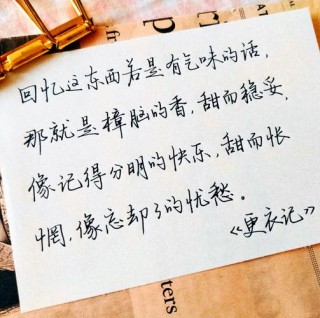 回忆这东西若是有气味的话,
那就是樟脑的香,甜而稳妥,
像记得分明的快乐,甜而怅
惘,像忘却了的忧愁。
《更衣记》
ters